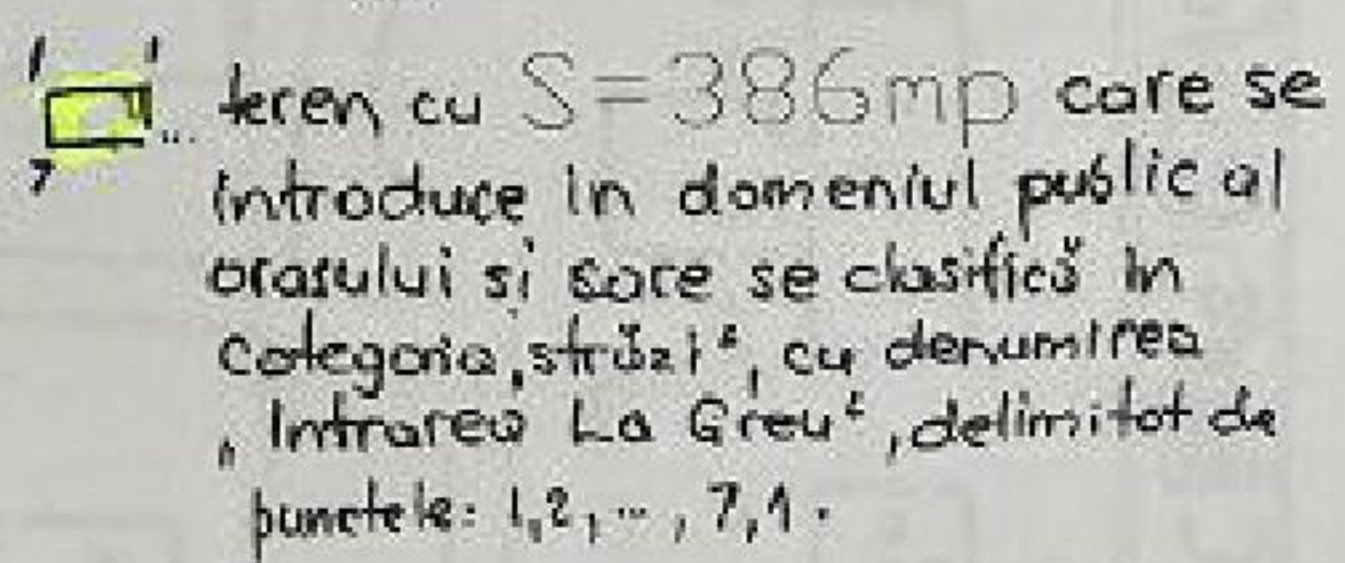 1 1
7 ... teren cu S=386mp care se
introduce in domeniul public al
orasului si care se clasifică in
categoria „străzi“, cu denumirea
„Intrarea La Greu“, delimitat de
punctele: 1,2,...,7,1.